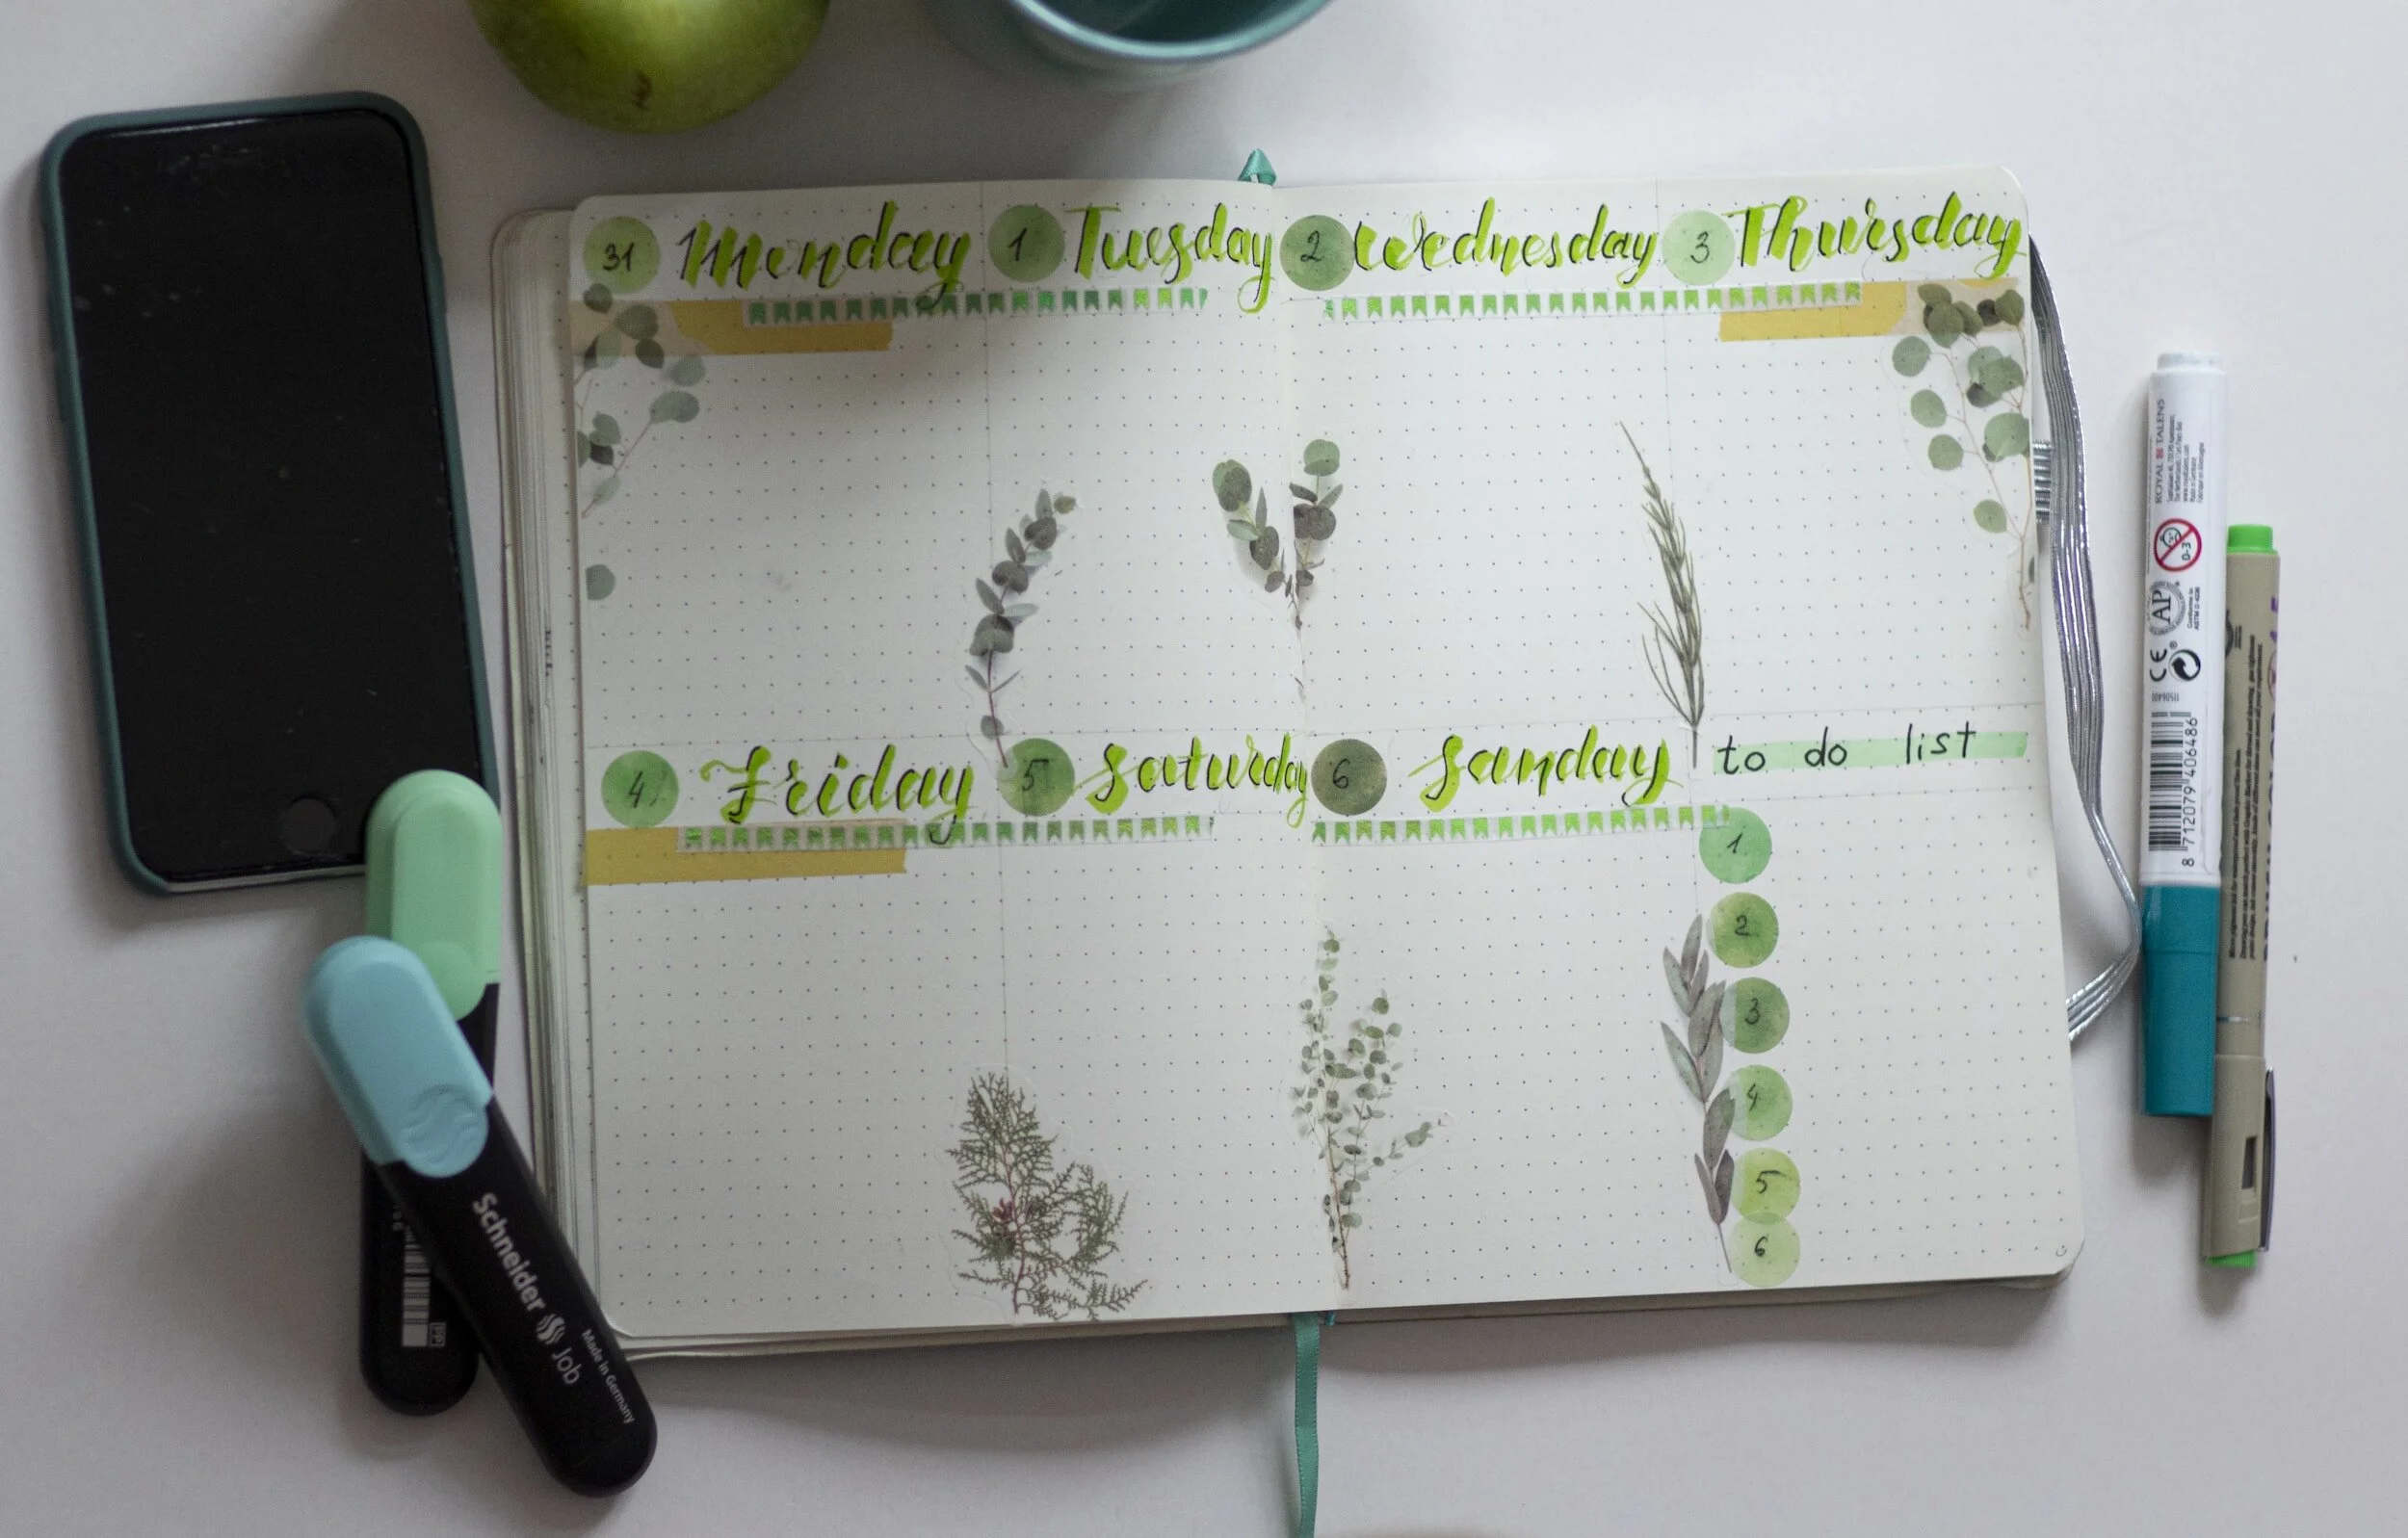 31 Monday 1 Tuesday 2 Wednesday 3 Thursday
4 Friday 5 Saturday 6 Sanday to do list
1
2
3
4
5
6
Schneider Job
Made in Germany
PP
ROYAL TALENS
0-3
AP
CE
11506400
8 712079 406486